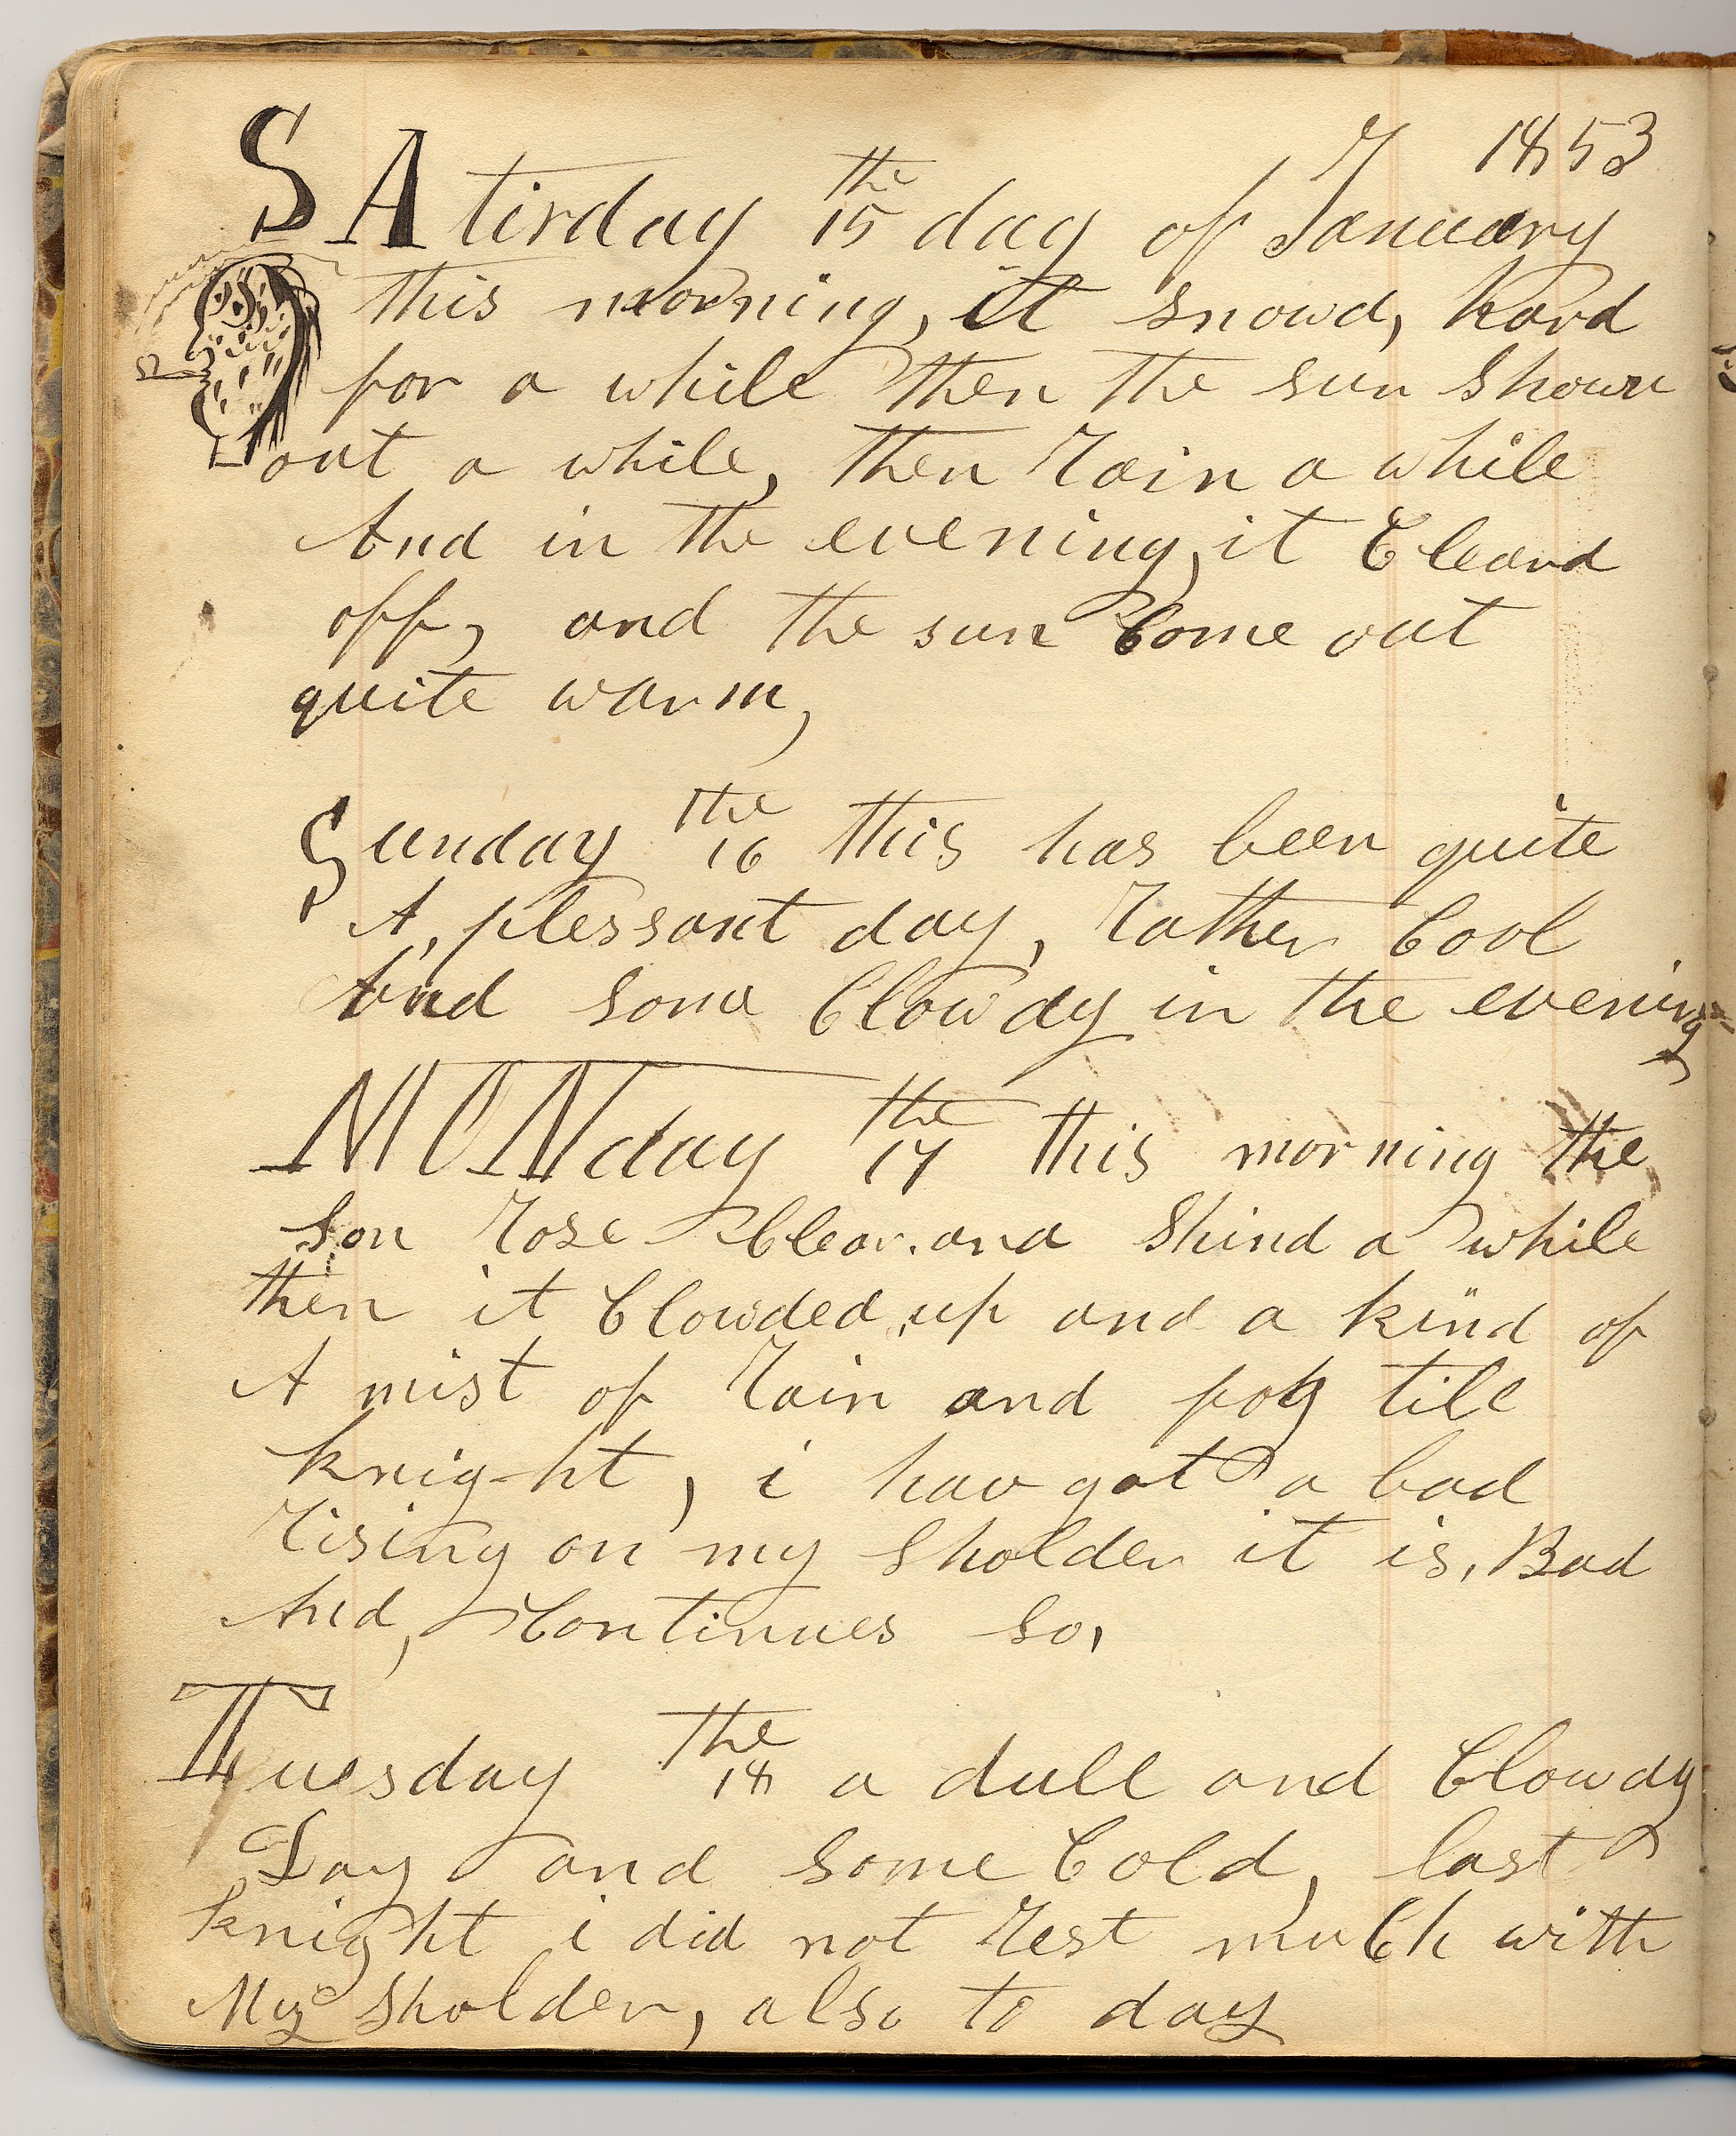 1853
SAtirday the 15 day of January
this morning, it snowd, hard
for a while then the sun shown
out a while, then Rain a while
And in the evening, it Cleard
off, and the sun Come out
quite warm,
Sunday the 16 this has been quite
A, plessant day, Rather Cool
And some Clowdy in the evening
MONday the 17 this morning the
son Rose Clear. and Shind a while
then it Clowded up and a kind of
A mist of Rain and fog till
knight, i hav got a bad
Rising on my Sholder it is, Bad
And, Continues So,
Tuesday the 18 a dull and Clowdy
Day and some Cold, last
knight i did not Rest muCh with
My Sholder, also to day